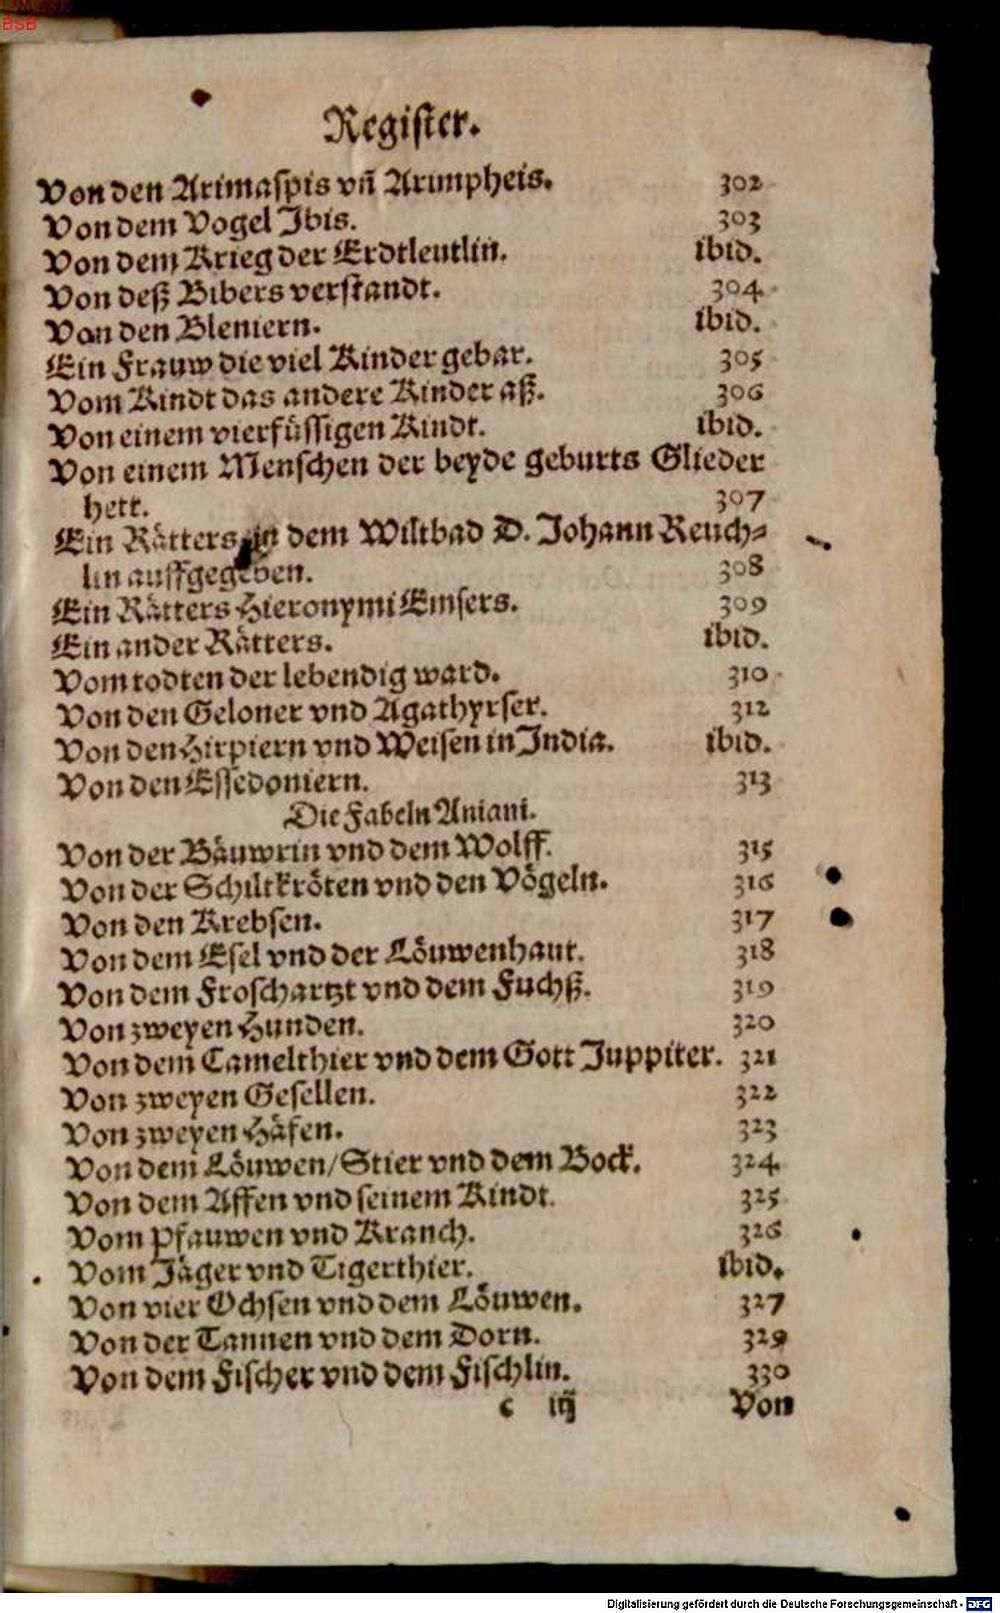 BSB
Register.
Von den Arimaspis vñ Arimpheis. 302
Von dem Vogel Ibis. 303
Von dem Krieg der Erdtleutlin. ibid.
Von deß Bibers verstandt. 304
Von den Bleniern. ibid.
Ein Frauw die viel Kinder gebar. 305
Vom Kindt das andere Kinder aß. 306
Von einem vierfüssigen Kindt. ibid.
Von einem Menschen der beyde geburts Glieder
hett. 307
Ein Rätters in dem Wiltbad D. Johann Reuch⸗
lin auffgegeben. 308
Ein Rätters Hieronymi Emsers. 309
Ein ander Rätters. ibid.
Vom todten der lebendig ward. 310
Von den Geloner vnd Agathyrser. 312
Von den Hirpiern vnd Weisen in India. ibid.
Von den Essedoniern. 313
Die Fabeln Aniani.
Von der Bäuwrin vnd dem Wolff. 315
Von der Schiltkröten vnd den Vögeln. 316
Von den Krebsen. 317
Von dem Esel vnd der Löuwenhaut. 318
Von dem Froschartzt vnd dem Fuchß. 319
Von zweyen Hunden. 320
Von dem Camelthier vnd dem Gott Juppiter. 321
Von zweyen Gesellen. 322
Von zweyen Häfen. 323
Von dem Löuwen/Stier vnd dem Bock. 324
Von dem Affen vnd seinem Kindt. 325
Vom Pfauwen vnd Kranch. 326
Vom Jäger vnd Tigerthier. ibid.
Von vier Ochsen vnd dem Löuwen. 327
Von der Tannen vnd dem Dorn. 329
Von dem Fischer vnd dem Fischlin. 330
c iiij Von
Digitalisierung gefördert durch die Deutsche Forschungsgemeinschaft - DFG